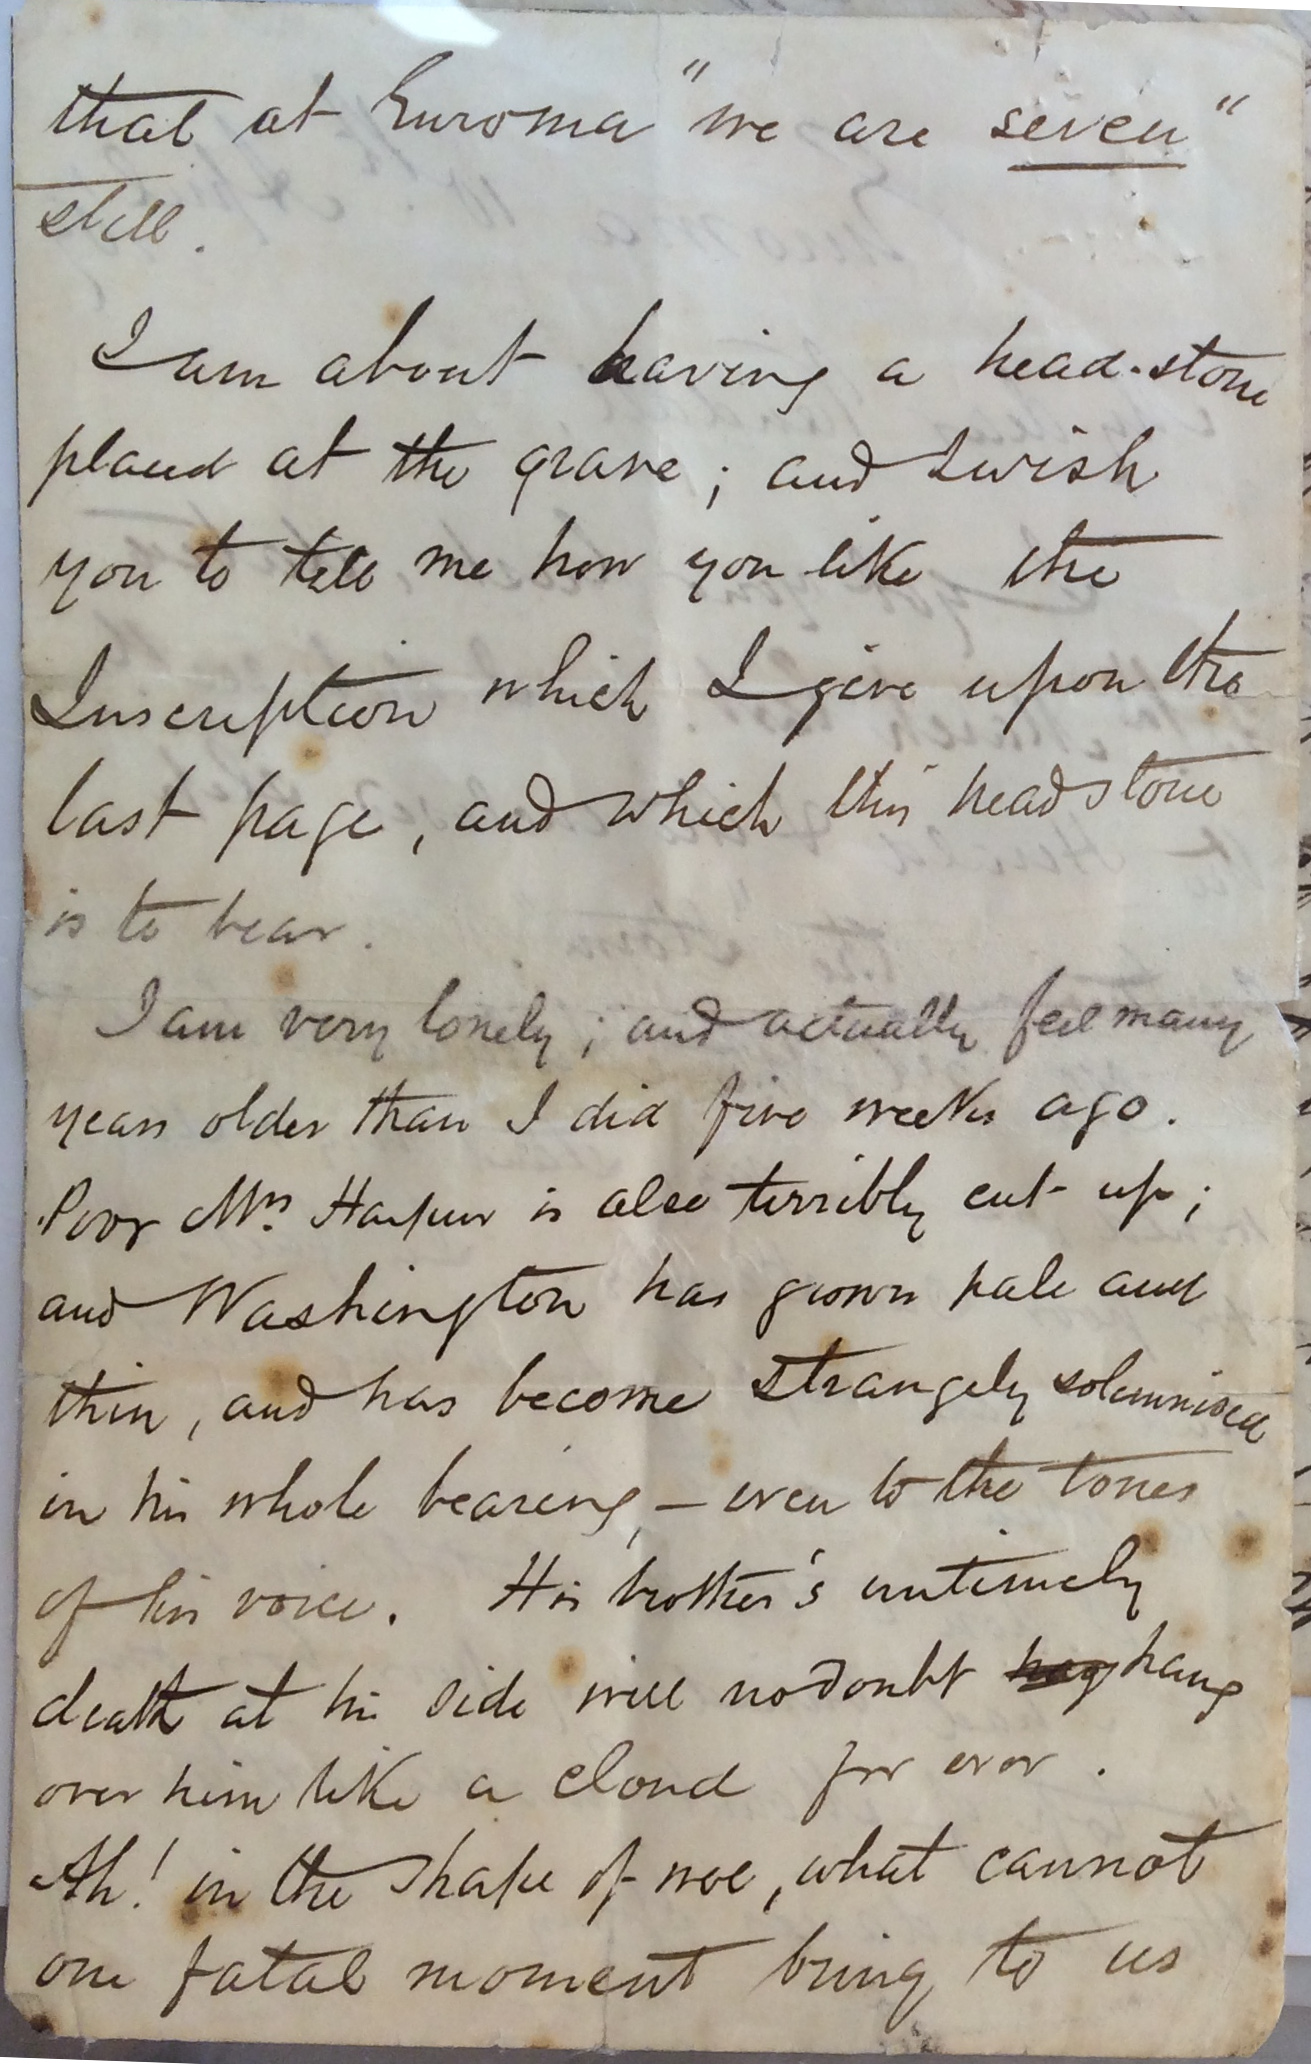 that at Euroma "we are seven"
still.
I am about having a head-stone
placed at the grave; and I wish
you to tell me how you like the
Inscription which I give upon the
last page, and which this headstone
is to bear.
I am very lonely; and actually feel many
years older than I did five weeks ago.
Poor Mrs. Harpur is also terribly cut up;
and Washington has grown pale and
thin, and has become strangely solemnised
in his whole bearing, — even to the tones
of his voice. His brother's untimely
death at his side will no doubt hang
over him like a cloud for ever.
Ah! in the shape of woe, what cannot
one fatal moment bring to us